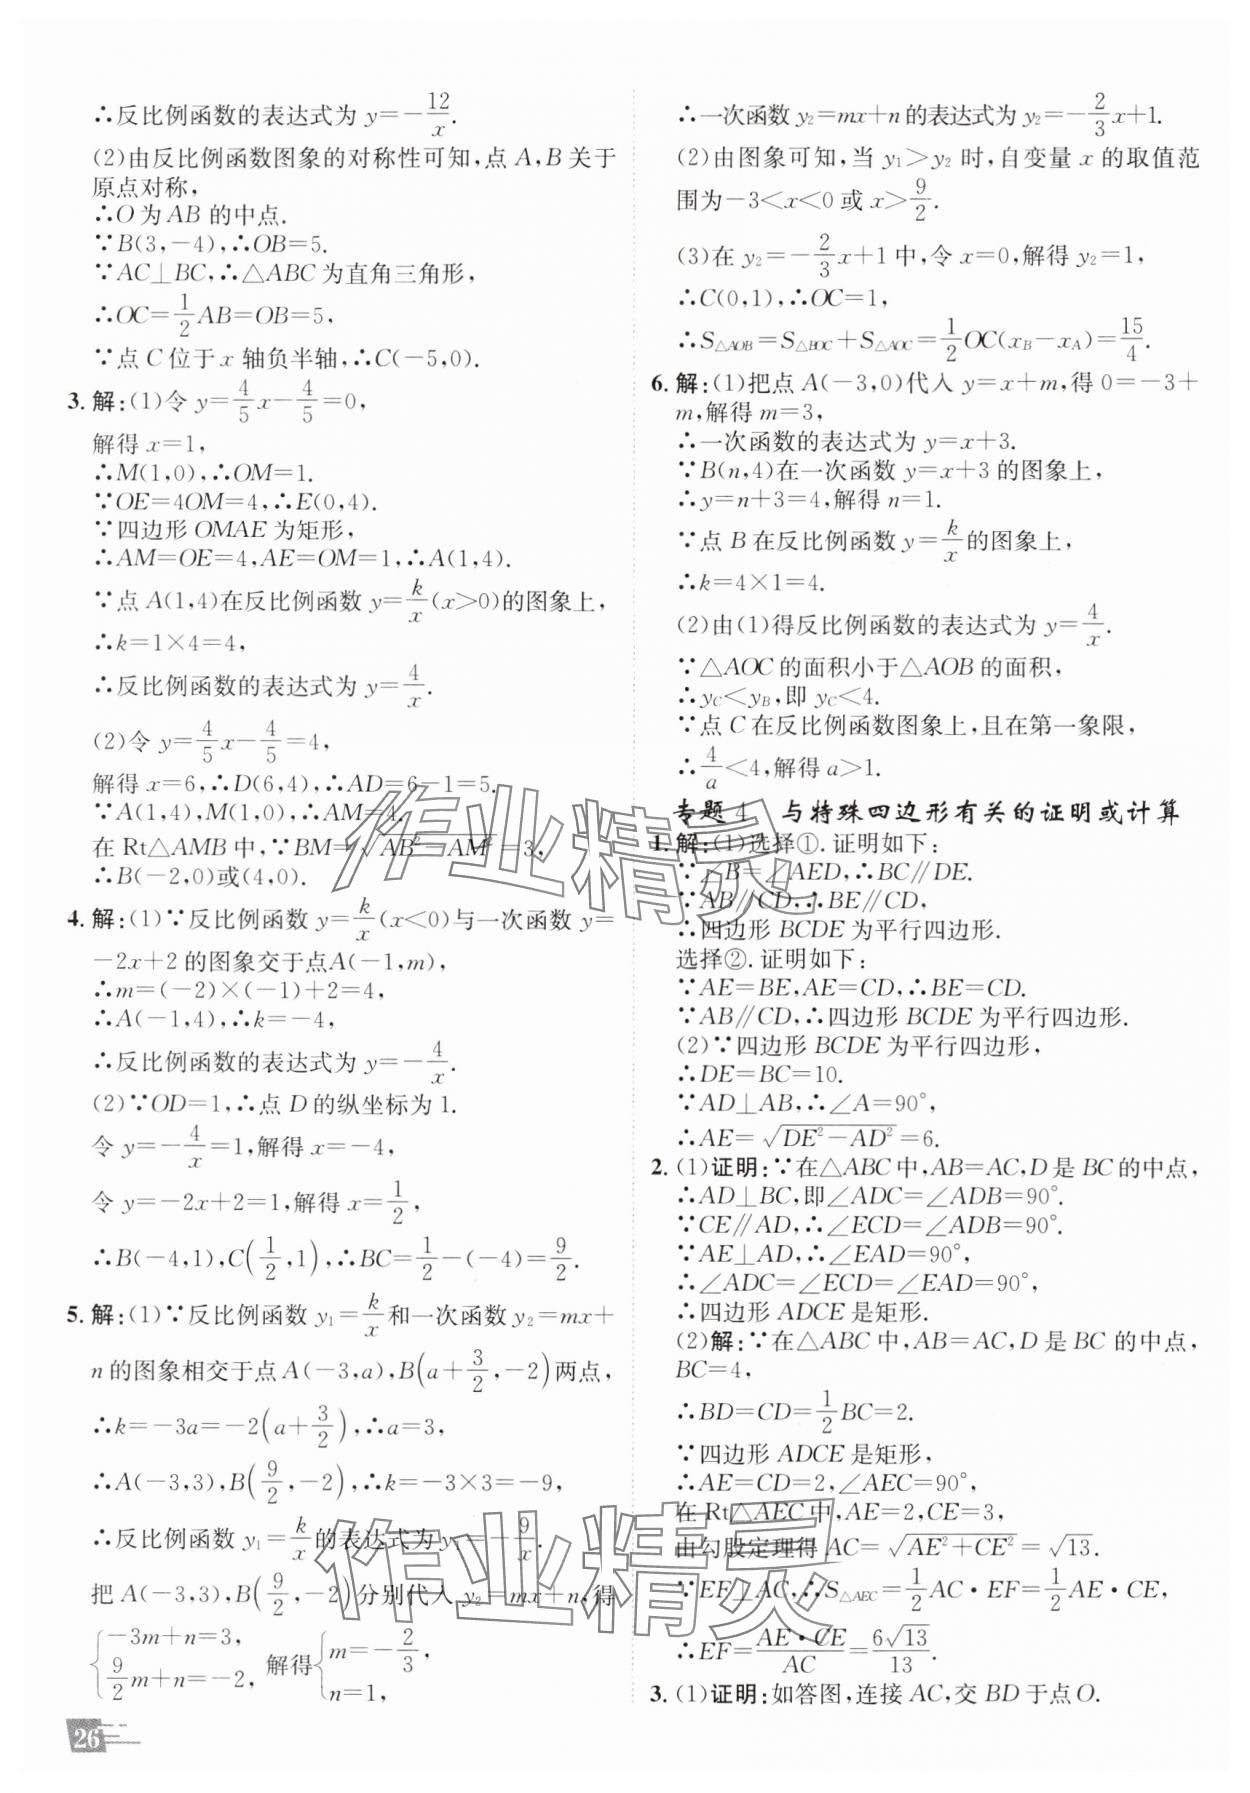 ∴反比例函数的表达式为 y=-12/x.
(2)由反比例函数图象的对称性可知,点 A,B 关于
原点对称,
∴O 为 AB 的中点.
∵B(3,-4),∴OB=5.
∵AC⊥BC,∴△ABC 为直角三角形,
∴OC=1/2AB=OB=5,
∵点 C 位于 x 轴负半轴,∴C(-5,0).
3. 解:(1)令 y=4/5x-4/5=0,
解得 x=1,
∴M(1,0),∴OM=1.
∵OE=4OM=4,∴E(0,4).
∵四边形 OMAE 为矩形,
∴AM=OE=4,AE=OM=1,∴A(1,4).
∵点 A(1,4)在反比例函数 y=k/x(x>0)的图象上,
∴k=1×4=4,
∴反比例函数的表达式为 y=4/x.
(2)令 y=4/5x-4/5=4,
解得 x=6,∴D(6,4),∴AD=6-1=5.
∵A(1,4),M(1,0),∴AM=4.
在 Rt△AMB 中,∵BM=√(AB²-AM²)=3,
∴B(-2,0)或(4,0).
4. 解:(1)∵反比例函数 y=k/x(x<0)与一次函数 y=
-2x+2 的图象交于点A(-1,m),
∴m=(-2)×(-1)+2=4,
∴A(-1,4),∴k=-4,
∴反比例函数的表达式为 y=-4/x.
(2)∵OD=1,∴点 D 的纵坐标为 1.
令 y=-4/x=1,解得 x=-4,
令 y=-2x+2=1,解得 x=1/2,
∴B(-4,1),C(1/2,1),∴BC=1/2-(-4)=9/2.
5. 解:(1)∵反比例函数 y₁=k/x和一次函数 y₂=mx+
n 的图象相交于点 A(-3,a),B(a+3/2,-2)两点,
∴k=-3a=-2(a+3/2),∴a=3,
∴A(-3,3),B(9/2,-2),∴k=-3×3=-9,
∴反比例函数 y₁=k/x的表达式为 y₁=-9/x.
把 A(-3,3),B(9/2,-2)分别代入 y₂=mx+n,得
{-3m+n=3, 9/2m+n=-2, 解得{m=-2/3, n=1,
26
∴一次函数 y₂=mx+n 的表达式为 y₂=-2/3x+1.
(2)由图象可知,当 y₁>y₂ 时,自变量 x 的取值范
围为-3<x<0 或 x>9/2.
(3)在 y₂=-2/3x+1 中,令 x=0,解得 y₂=1,
∴C(0,1),∴OC=1,
∴S△AOB=S△BOC+S△AOC=1/2OC(xB-xA)=15/4.
6. 解:(1)把点 A(-3,0)代入 y=x+m,得 0=-3+
m,解得 m=3,
∴一次函数的表达式为 y=x+3.
∵B(n,4)在一次函数 y=x+3 的图象上,
∴y=n+3=4,解得 n=1.
∵点 B 在反比例函数 y=k/x的图象上,
∴k=4×1=4.
(2)由(1)得反比例函数的表达式为 y=4/x.
∵△AOC 的面积小于△AOB 的面积,
∴yC<yB,即 yC<4.
∵点 C 在反比例函数图象上,且在第一象限,
∴4/a<4,解得 a>1.
专题 4 与特殊四边形有关的证明或计算
1. 解:(1)选择①.证明如下:
∵∠B=∠AED,∴BC∥DE.
∵AB∥CD,∴BE∥CD,
∴四边形 BCDE 为平行四边形.
选择②.证明如下:
∵AE=BE,AE=CD,∴BE=CD.
∵AB∥CD,∴四边形 BCDE 为平行四边形.
(2)∵四边形 BCDE 为平行四边形,
∴DE=BC=10.
∵AD⊥AB,∴∠A=90°,
∴AE=√(DE²-AD²)=6.
2. (1)证明:∵在△ABC 中,AB=AC,D 是 BC 的中点,
∴AD⊥BC,即∠ADC=∠ADB=90°.
∵CE∥AD,∴∠ECD=∠ADB=90°.
∵AE⊥AD,∴∠EAD=90°,
∴∠ADC=∠ECD=∠EAD=90°,
∴四边形 ADCE 是矩形.
(2)解:∵在△ABC 中,AB=AC,D 是 BC 的中点,
BC=4,
∴BD=CD=1/2BC=2.
∵四边形 ADCE 是矩形,
∴AE=CD=2,∠AEC=90°.
在 Rt△AEC 中,AE=2,CE=3,
由勾股定理得 AC=√(AE²+CE²)=√13.
∵EF⊥AC,∴S△AEC=1/2AC·EF=1/2AE·CE,
∴EF=AE·CE/AC=6√13/13.
3. (1)证明:如答图,连接 AC,交 BD 于点 O.
作业精灵
作业精灵